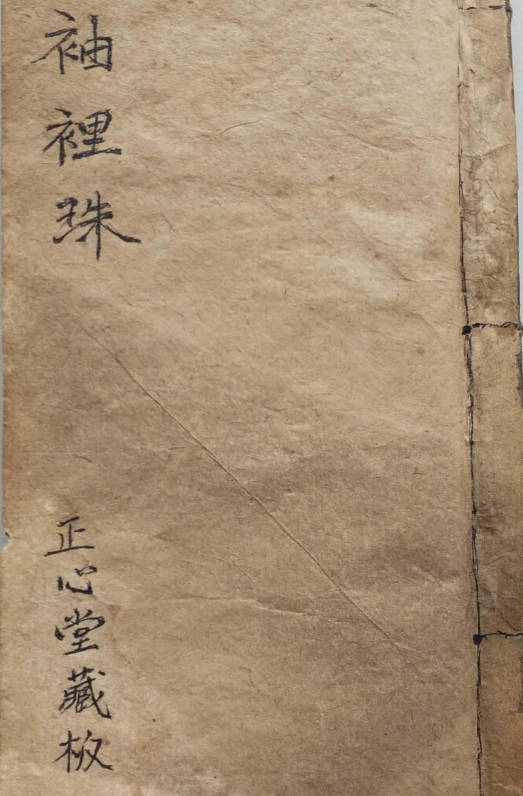 袖裡珠
正心堂藏板